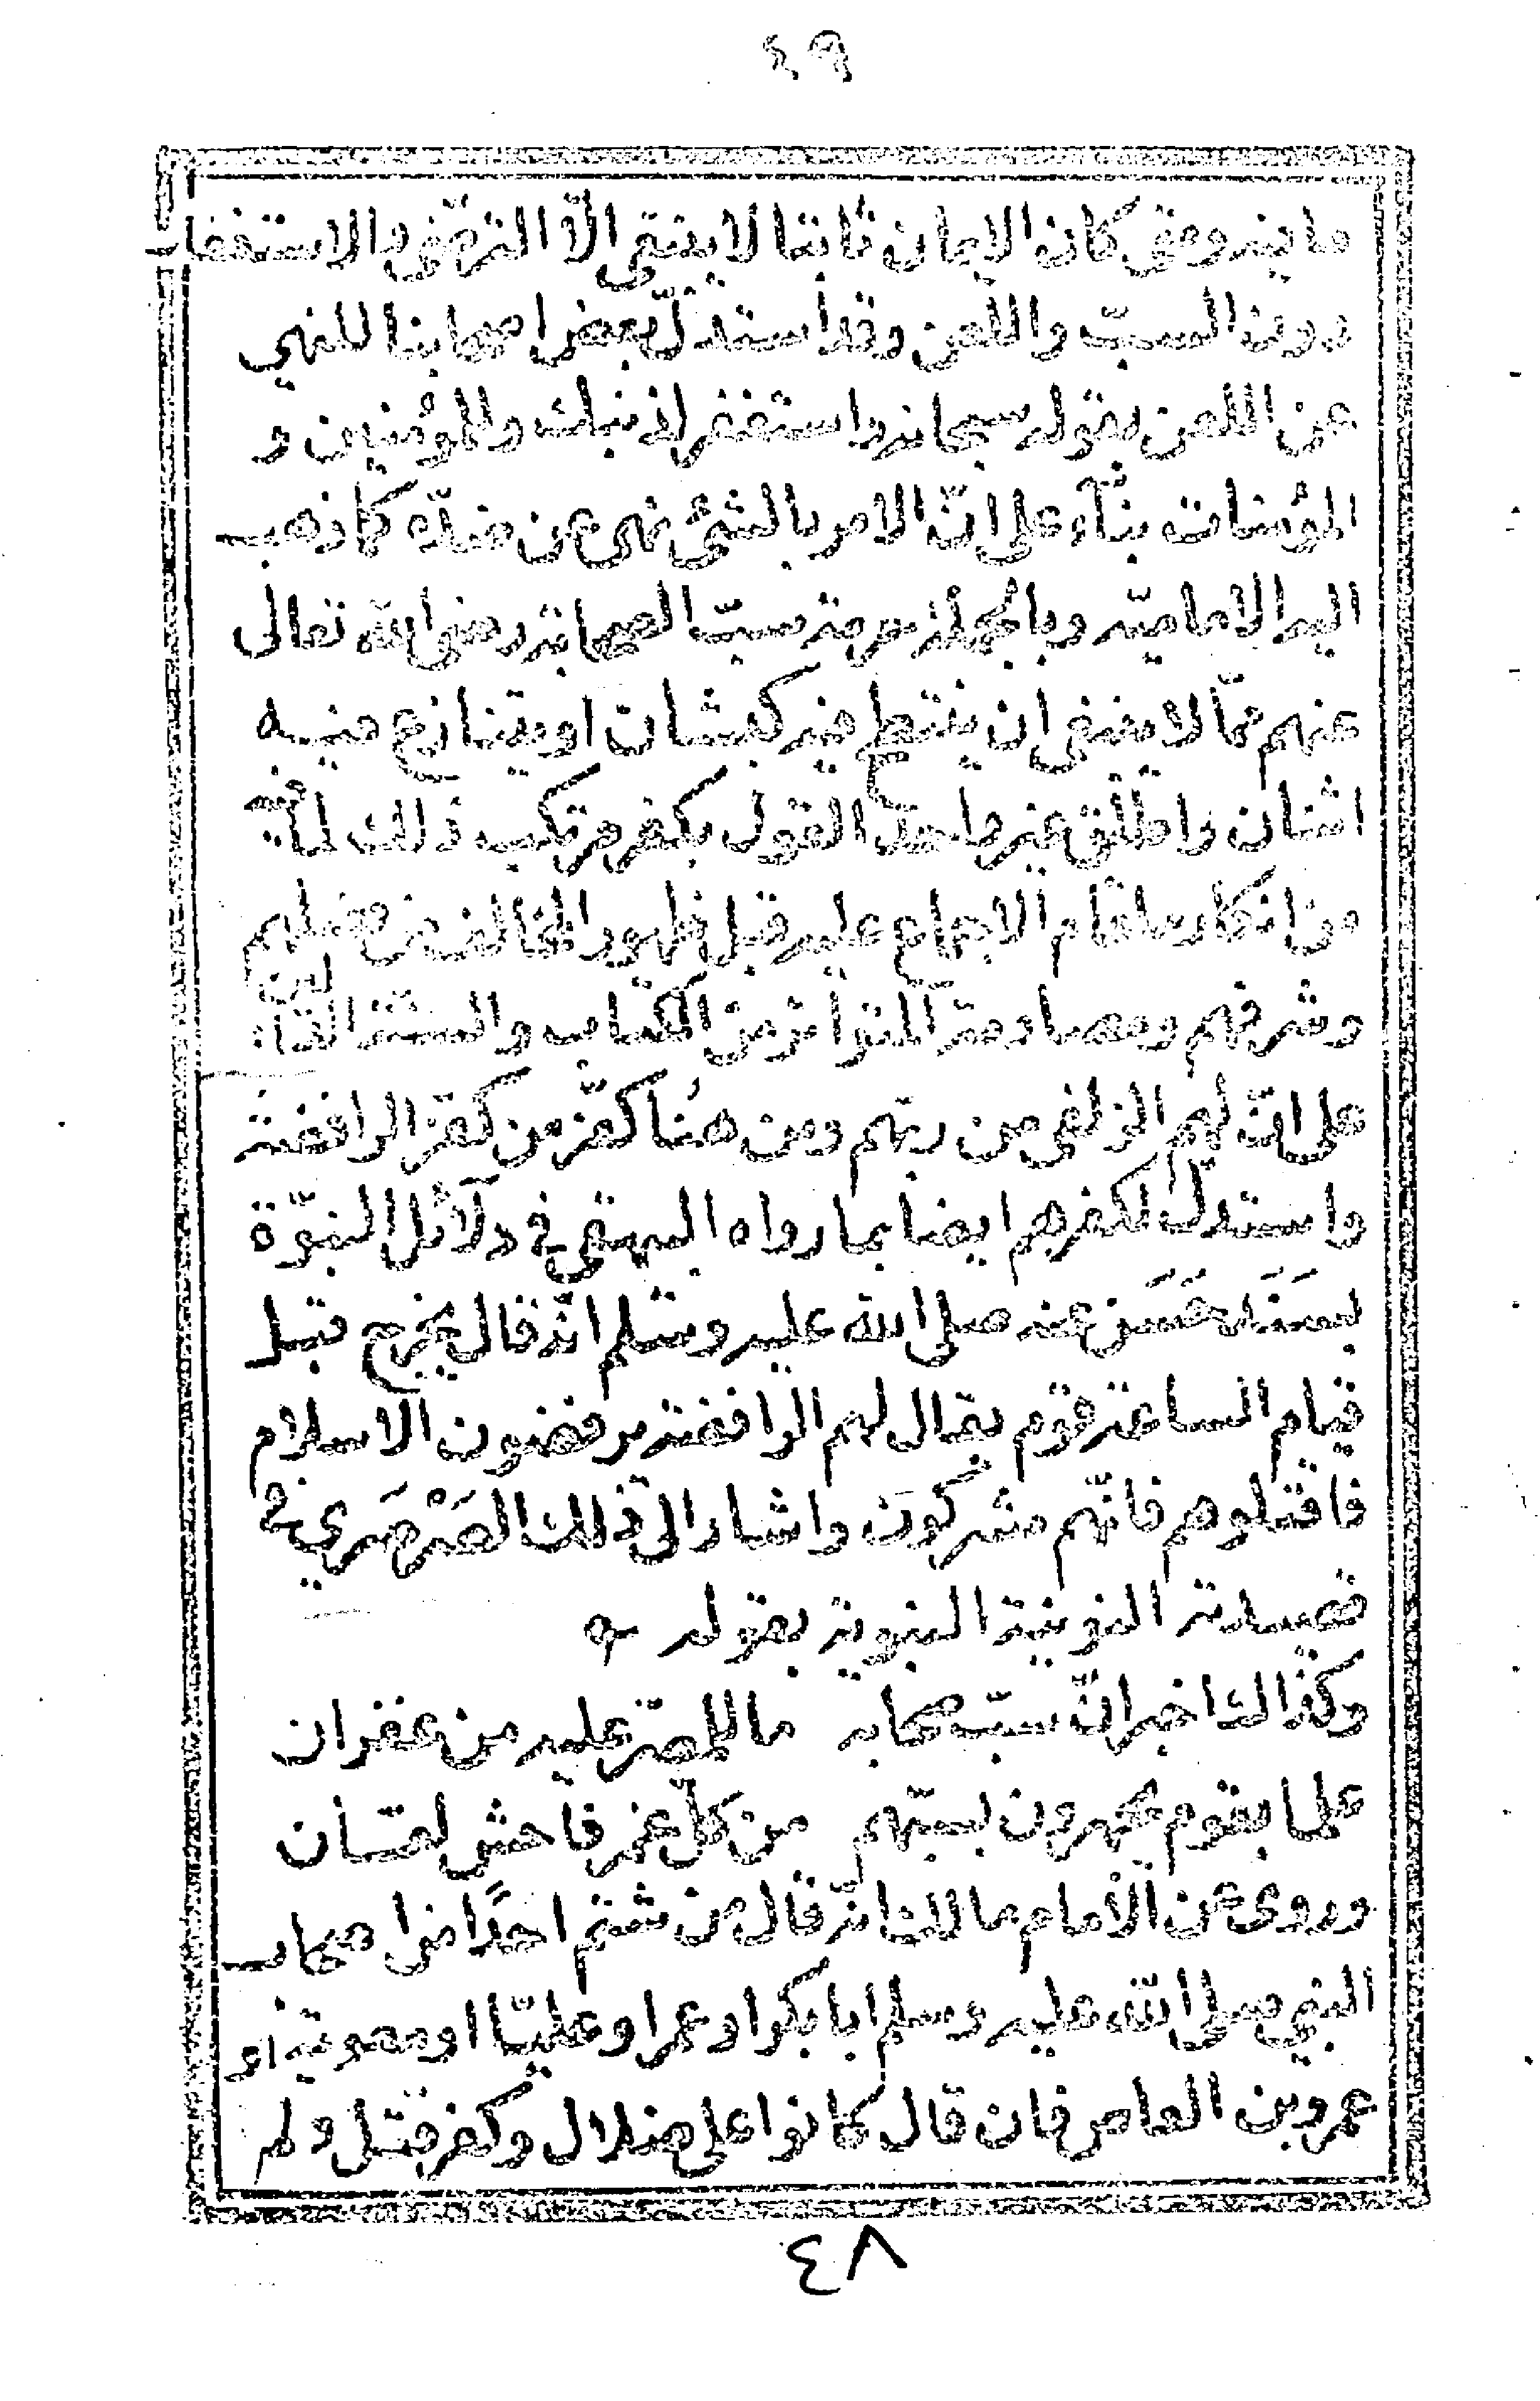 ٤٩
ما فيه ومتى كان الايمان ثابتا لا ينبغي الّا الترضّي والاستغفار
دون السبّ واللعن وقد استدلّ بعض اصحابنا للنهي
عن اللعن بقوله سبحانه واستغفر لذنبك وللمؤمنين و
المؤمنات بنآء على انّ الامر بالشئ نهى عن ضدّه كما ذهب
اليه الاماميّه وبالجملة حرمة سبّ الصحابة رضى الله تعالى
عنهم ممّا لا ينبغى ان ينتطح فيه كبشان او يتنازع فيه
اثنان واطلق غير واحد القول بكفر مرتكب ذلك لما فيه
من انكار ما قام الاجماع عليه قبل ظهور المخالف من فضلهم
وشرفهم ومصادمة المتواتر من الكتاب والسنة الدالين
على انّ لهم الزلفى من ربّهم ومن هنا كفّر من كفّر الرافضة
واستدلّ لكفرهم ايضا بما رواه البيهقي في دلآئل النبوّة
بسَنَد حَسَن عنه صلى الله عليه وسلم انّه قال يخرج قبل
قيام الساعة قوم يقال لهم الرافضة يرفضون الاسلام
فاقتلوهم فانّهم مشركون واشار الى ذلك الصَرْصَري في
قصيدته النونية النبوية بقوله
وكذاك اخبر انّ سبّ صحابه ما للمصرّ عليه من غفران
علما بقوم يجهرون بسبّهم من كلّ غمر فاحش لعّان
وروى عن الامام مالك انّه قال من شتم احدًا من اصحاب
النبي صلى الله عليه وسلم ابا بكر او عمر او عليّا او معوية او
عمرو بن العاص فان قال كانوا على ضلال وكفر قتل ولم
٤٨